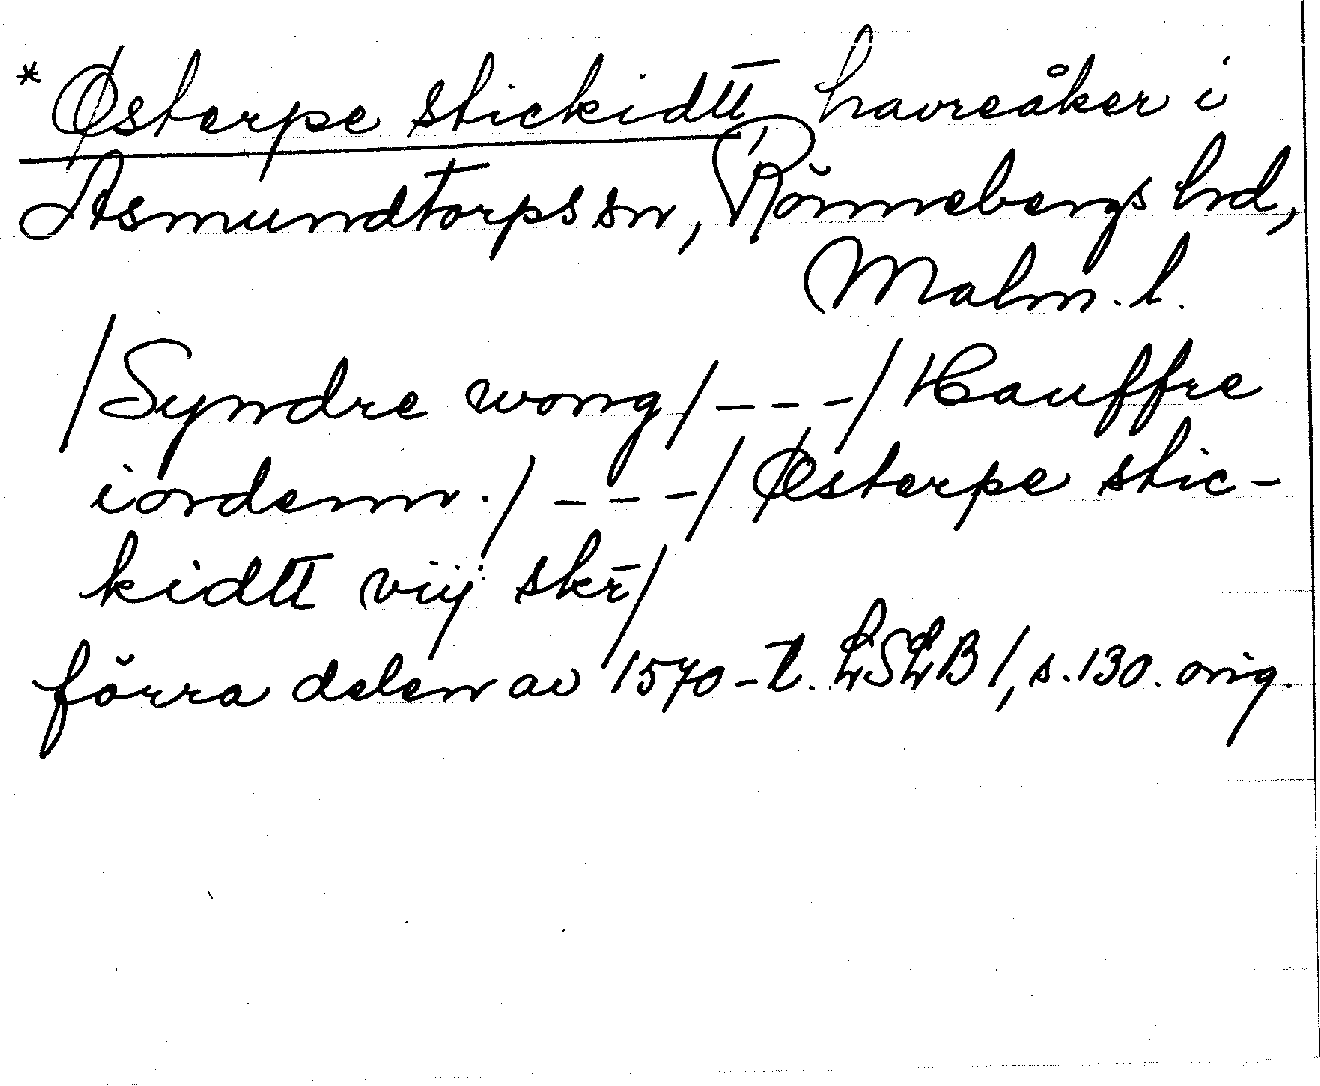 * Østerpe stickidtt, havreåker i
Asmundtorps sn, Rönnebergs hd,
Malm. l.
/Syndre wong/ – – – / Hauffre
iordenn. / – – – / Østerpe stic-
kidtt vij skr̄/
förra delen av 1570-t. LSLB 1, s. 130. orig.